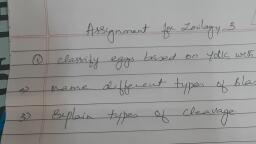 Assignment for Zoology 3
① Classify eggs based on Yolk with
2) name different types of
3) Explain types of cleavage